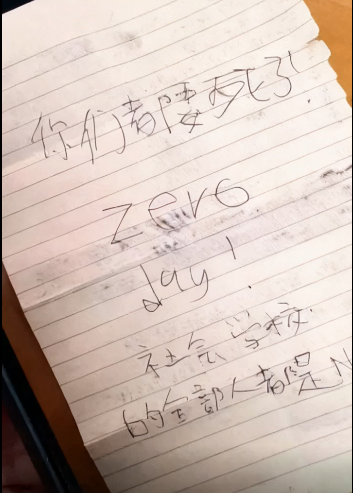 你们都要死了!
zero
day!
社会学校
的全部人都是N